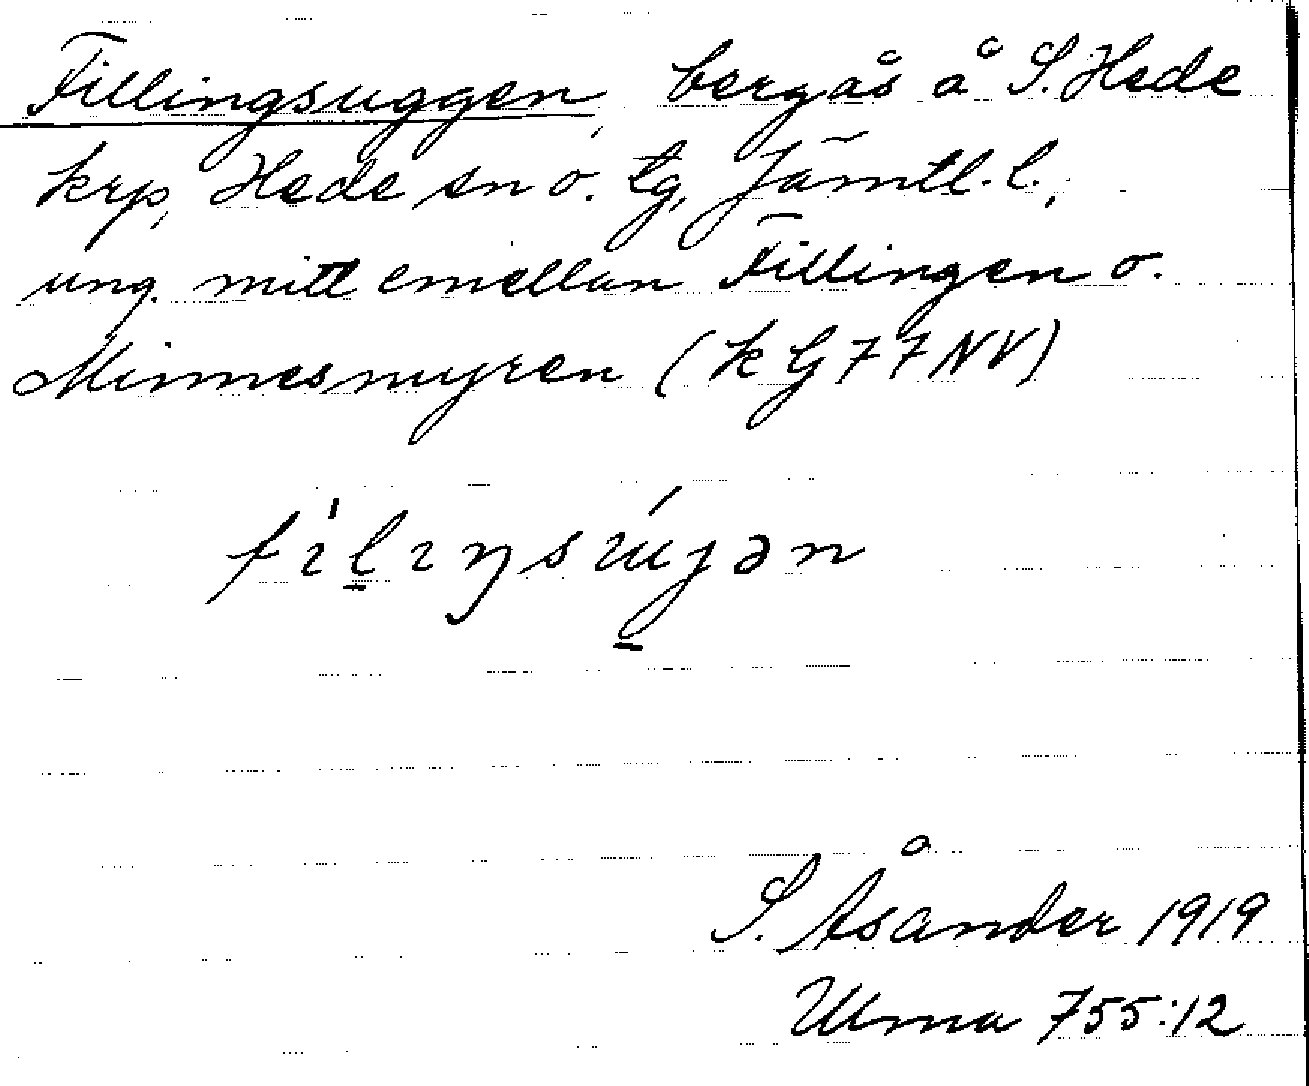 Fillingsuggen, bergås å S. Hede
krp, Hede sn o. tg, Jämtl. l.,
ung. mitt emellan Fillingen o.
Minnesmyren (k G 77 NV)
S. Åsander 1919
Ulma 755:12